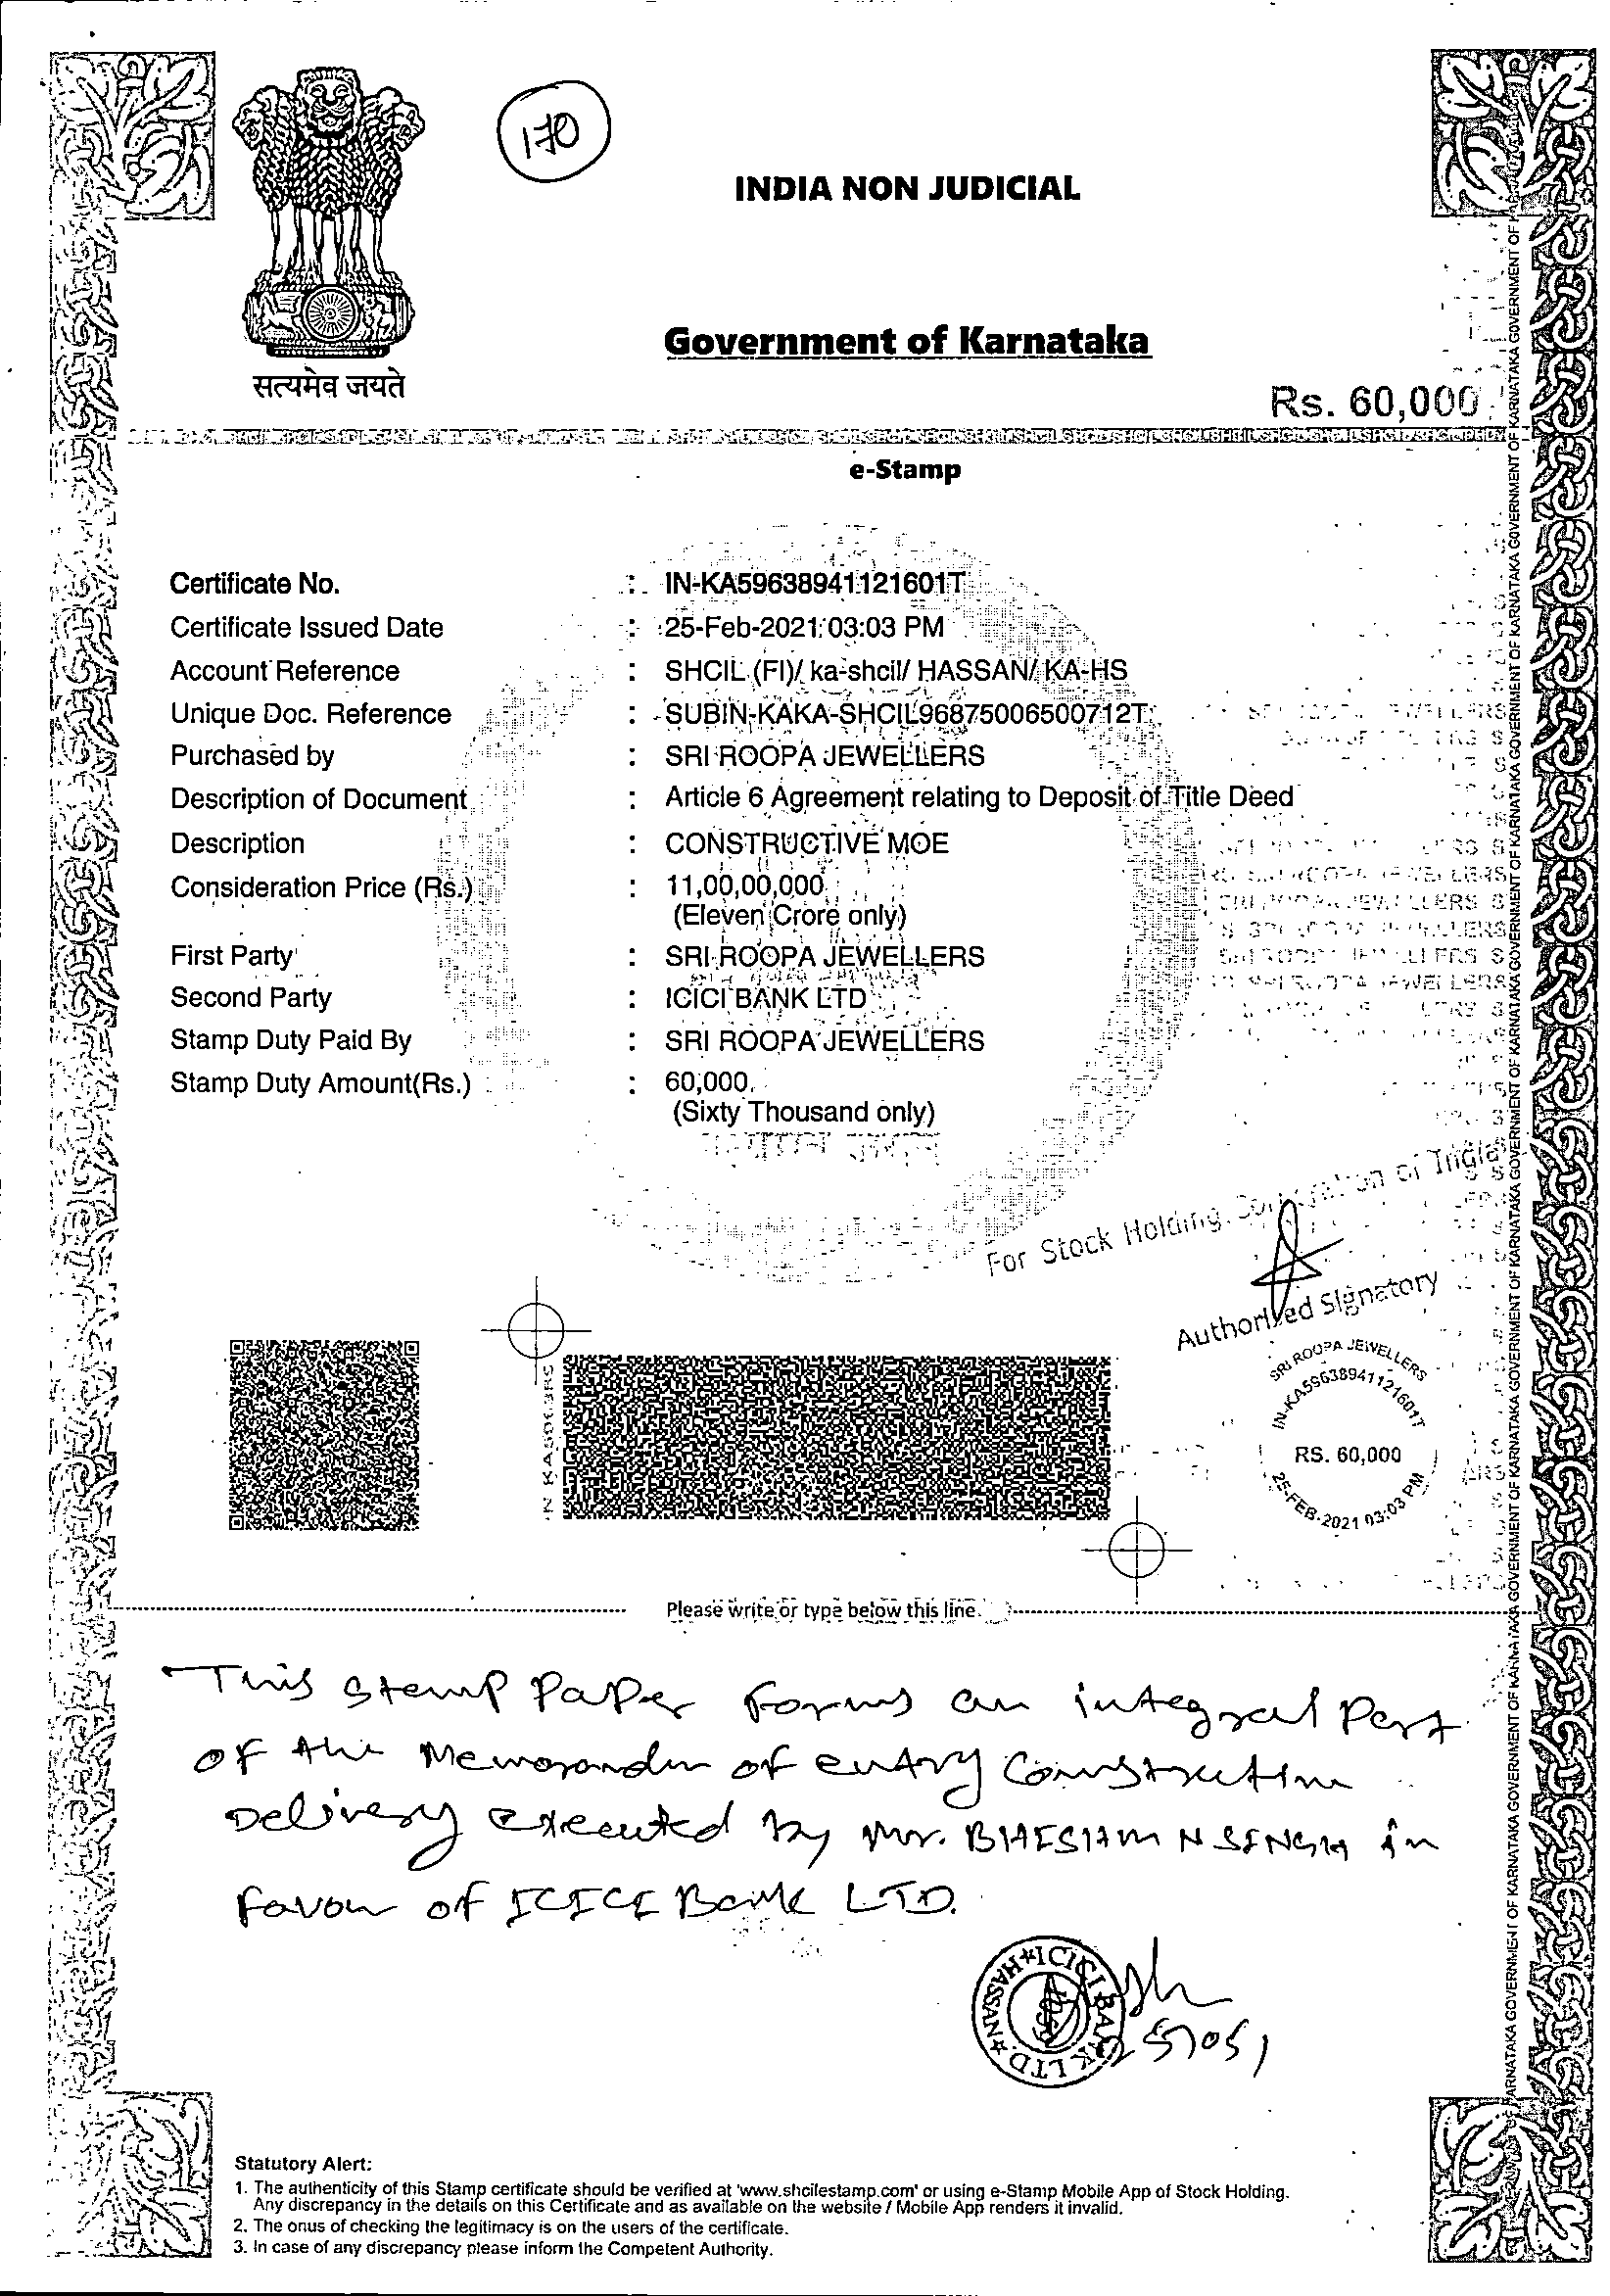 170
INDIA NON JUDICIAL
Government of Karnataka
सत्यमेव जयते
Rs. 60,000
e-Stamp
Certificate No. : IN-KA59638941121601T
Certificate Issued Date : 25-Feb-2021 03:03 PM
Account Reference : SHCIL (FI)/ ka-shcil/ HASSAN/ KA-HS
Unique Doc. Reference : SUBIN-KAKA-SHCIL96875006500712T
Purchased by : SRI ROOPA JEWELLERS
Description of Document : Article 6 Agreement relating to Deposit of Title Deed
Description : CONSTRUCTIVE MOE
Consideration Price (Rs.) : 11,00,00,000
(Eleven Crore only)
First Party : SRI ROOPA JEWELLERS
Second Party : ICICI BANK LTD
Stamp Duty Paid By : SRI ROOPA JEWELLERS
Stamp Duty Amount(Rs.) : 60,000
(Sixty Thousand only)
For Stock Holding Corporation of
Authorised Signatory
SRI ROOPA JEWELLERS
IN-KA59638941121601T
RS. 60,000
25-FEB-2021 03:03 PM
Please write or type below this line
This stamp Paper Forms an integral Part
of the Memorandm of entry Constructim
Delivery executed by Mr. BHESHAM N SINGH in
favour of ICICI Bank LTD.
ICICI BANK LTD. HASSAN
Statutory Alert:
1. The authenticity of this Stamp certificate should be verified at 'www.shcilestamp.com' or using e-Stamp Mobile App of Stock Holding.
Any discrepancy in the details on this Certificate and as available on the website / Mobile App renders it invalid.
2. The onus of checking the legitimacy is on the users of the certificate.
3. In case of any discrepancy please inform the Competent Authority.
GOVERNMENT OF KARNATAKA